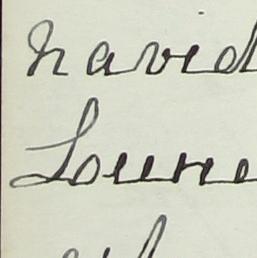 navid
Loune